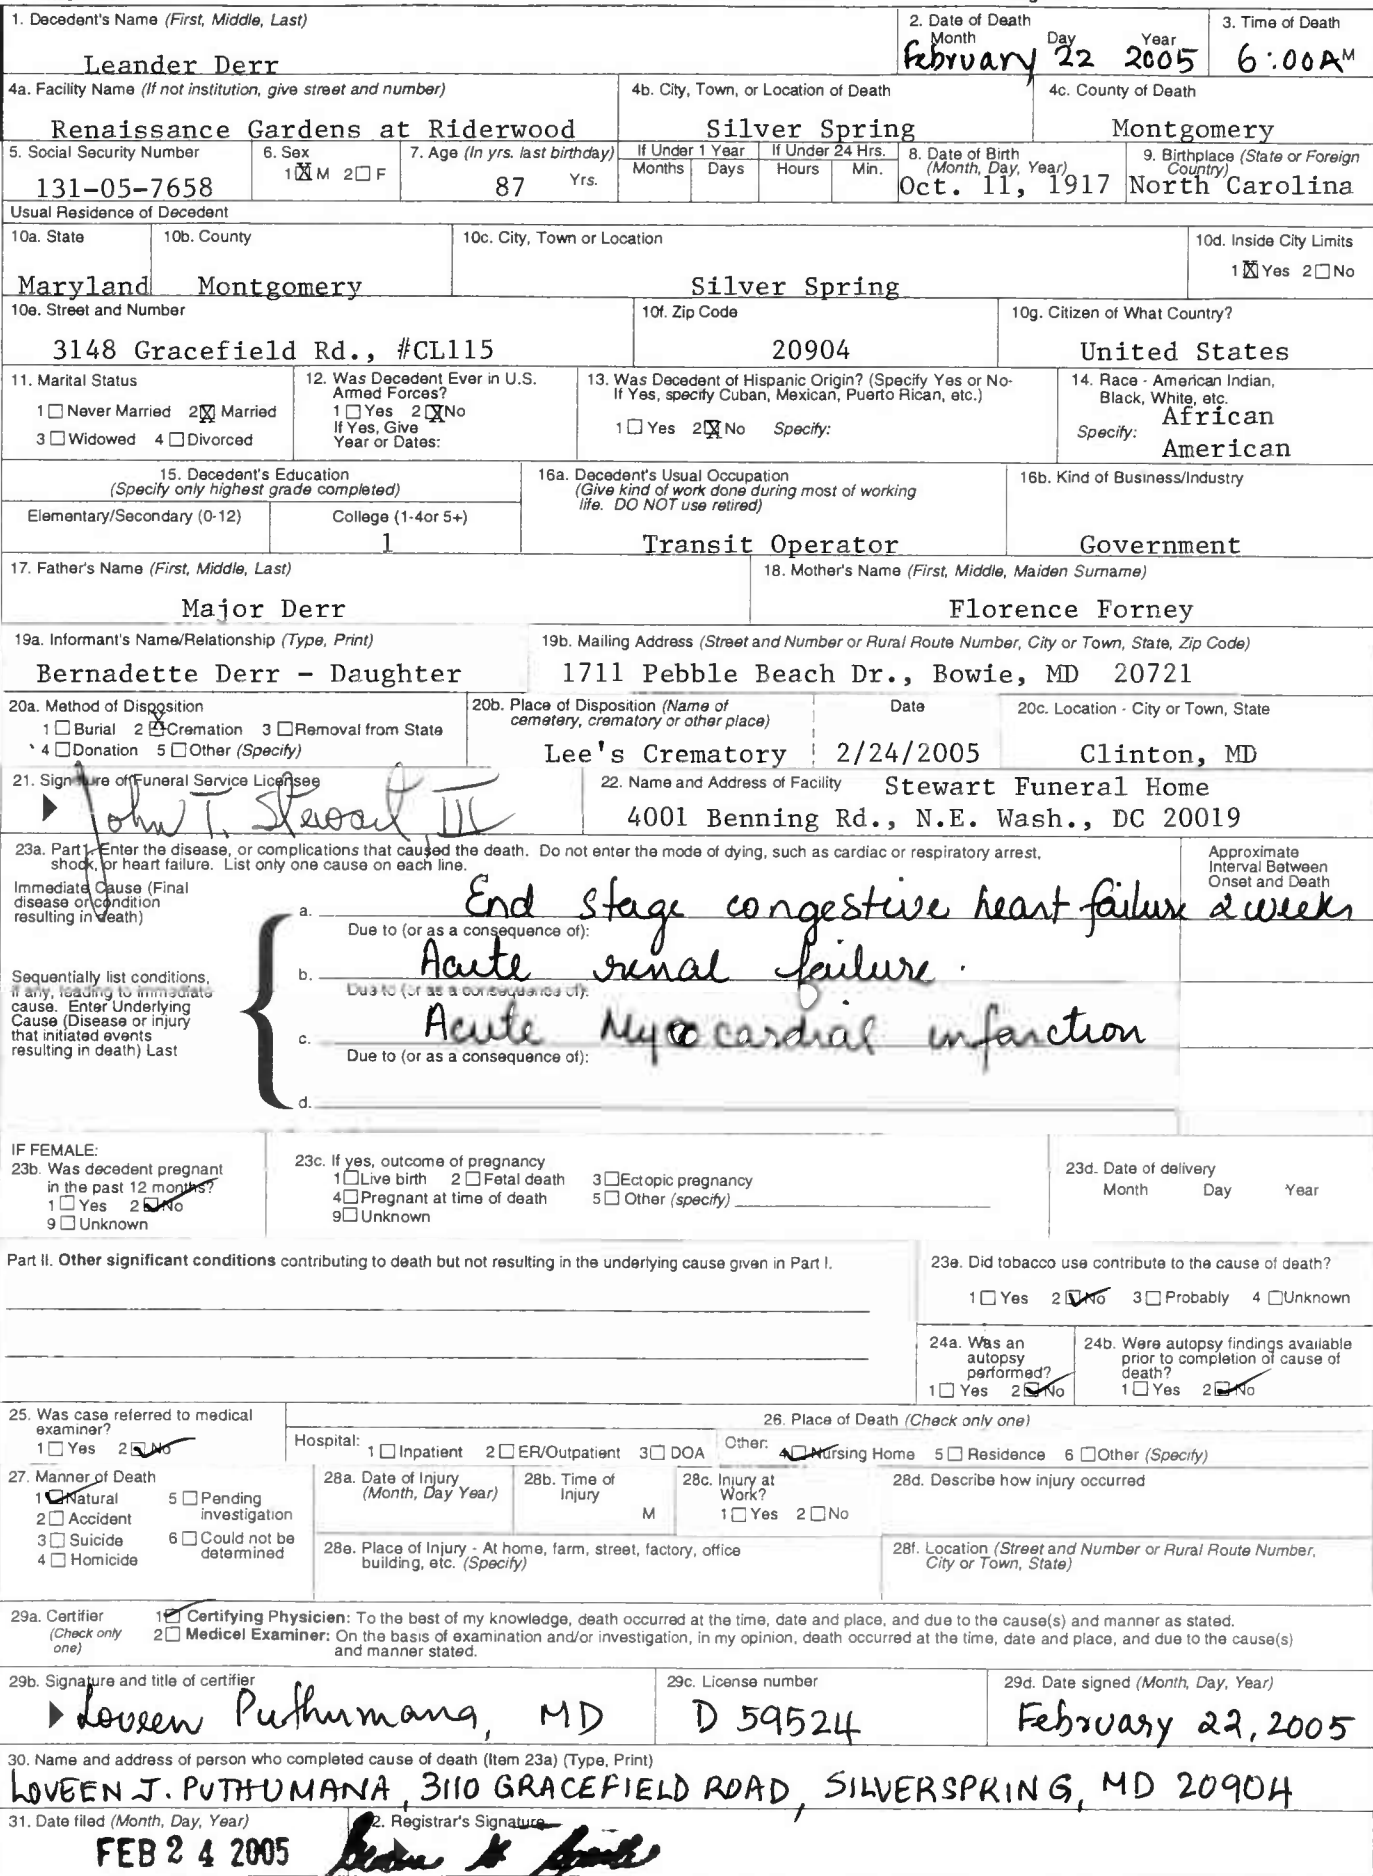 1. Decedent's Name (First, Middle, Last)
Leander Derr
2. Date of Death
Month Day Year
February 22 2005
3. Time of Death
6:00A M
4a. Facility Name (If not institution, give street and number)
Renaissance Gardens at Riderwood
4b. City, Town, or Location of Death
Silver Spring
4c. County of Death
Montgomery
5. Social Security Number
131-05-7658
6. Sex
1 X M 2 □ F
7. Age (In yrs. last birthday)
87 Yrs.
If Under 1 Year
Months Days
If Under 24 Hrs.
Hours Min.
8. Date of Birth
(Month, Day, Year)
Oct. 11, 1917
9. Birthplace (State or Foreign
Country)
North Carolina
Usual Residence of Decedent
10a. State
Maryland
10b. County
Montgomery
10c. City, Town or Location
Silver Spring
10d. Inside City Limits
1 X Yes 2 □ No
10e. Street and Number
3148 Gracefield Rd., #CL115
10f. Zip Code
20904
10g. Citizen of What Country?
United States
11. Marital Status
1 □ Never Married 2 X Married
3 □ Widowed 4 □ Divorced
12. Was Decedent Ever in U.S.
Armed Forces?
1 □ Yes 2 X No
If Yes, Give
Year or Dates:
13. Was Decedent of Hispanic Origin? (Specify Yes or No-
If Yes, specify Cuban, Mexican, Puerto Rican, etc.)
1 □ Yes 2 X No Specify:
14. Race - American Indian,
Black, White, etc.
Specify: African
American
15. Decedent's Education
(Specify only highest grade completed)
Elementary/Secondary (0-12)
College (1-4or 5+)
1
16a. Decedent's Usual Occupation
(Give kind of work done during most of working
life. DO NOT use retired)
Transit Operator
16b. Kind of Business/Industry
Government
17. Father's Name (First, Middle, Last)
Major Derr
18. Mother's Name (First, Middle, Maiden Surname)
Florence Forney
19a. Informant's Name/Relationship (Type, Print)
Bernadette Derr - Daughter
19b. Mailing Address (Street and Number or Rural Route Number, City or Town, State, Zip Code)
1711 Pebble Beach Dr., Bowie, MD 20721
20a. Method of Disposition
1 □ Burial 2 X Cremation 3 □ Removal from State
4 □ Donation 5 □ Other (Specify)
20b. Place of Disposition (Name of
cemetery, crematory or other place)
Lee's Crematory
Date
2/24/2005
20c. Location - City or Town, State
Clinton, MD
21. Signature of Funeral Service Licensee
John T. Stewart, III
22. Name and Address of Facility Stewart Funeral Home
4001 Benning Rd., N.E. Wash., DC 20019
23a. Part I. Enter the disease, or complications that caused the death. Do not enter the mode of dying, such as cardiac or respiratory arrest,
shock, or heart failure. List only one cause on each line.
Approximate
Interval Between
Onset and Death
Immediate Cause (Final
disease or condition
resulting in death)
a. End stage congestive heart failure 2 weeks
Due to (or as a consequence of):
b. Acute renal failure.
Due to (or as a consequence of):
c. Acute Myocardial infarction
Due to (or as a consequence of):
d.
Sequentially list conditions,
if any, leading to immediate
cause. Enter Underlying
Cause (Disease or injury
that initiated events
resulting in death) Last
IF FEMALE:
23b. Was decedent pregnant
in the past 12 months?
1 □ Yes 2 ☑ No
9 □ Unknown
23c. If yes, outcome of pregnancy
1 □ Live birth 2 □ Fetal death 3 □ Ectopic pregnancy
4 □ Pregnant at time of death 5 □ Other (specify)
9 □ Unknown
23d. Date of delivery
Month Day Year
Part II. Other significant conditions contributing to death but not resulting in the underlying cause given in Part I.
23e. Did tobacco use contribute to the cause of death?
1 □ Yes 2 ☑ No 3 □ Probably 4 □ Unknown
24a. Was an
autopsy
performed?
1 □ Yes 2 ☑ No
24b. Were autopsy findings available
prior to completion of cause of
death?
1 □ Yes 2 ☑ No
25. Was case referred to medical
examiner?
1 □ Yes 2 ☑ No
26. Place of Death (Check only one)
Hospital: 1 □ Inpatient 2 □ ER/Outpatient 3 □ DOA Other: 4 ☑ Nursing Home 5 □ Residence 6 □ Other (Specify)
27. Manner of Death
1 ☑ Natural 5 □ Pending
investigation
2 □ Accident
3 □ Suicide 6 □ Could not be
determined
4 □ Homicide
28a. Date of Injury
(Month, Day Year)
28b. Time of
Injury
M
28c. Injury at
Work?
1 □ Yes 2 □ No
28d. Describe how injury occurred
28e. Place of Injury - At home, farm, street, factory, office
building, etc. (Specify)
28f. Location (Street and Number or Rural Route Number,
City or Town, State)
29a. Certifier
(Check only
one)
1 ☑ Certifying Physicien: To the best of my knowledge, death occurred at the time, date and place, and due to the cause(s) and manner as stated.
2 □ Medicel Examiner: On the basis of examination and/or investigation, in my opinion, death occurred at the time, date and place, and due to the cause(s)
and manner stated.
29b. Signature and title of certifier
Loveen Puthumana, MD
29c. License number
D 59524
29d. Date signed (Month, Day, Year)
February 22, 2005
30. Name and address of person who completed cause of death (Item 23a) (Type, Print)
LOVEEN J. PUTHUMANA, 3110 GRACEFIELD ROAD, SILVERSPRING, MD 20904
31. Date filed (Month, Day, Year)
FEB 24 2005
32. Registrar's Signature